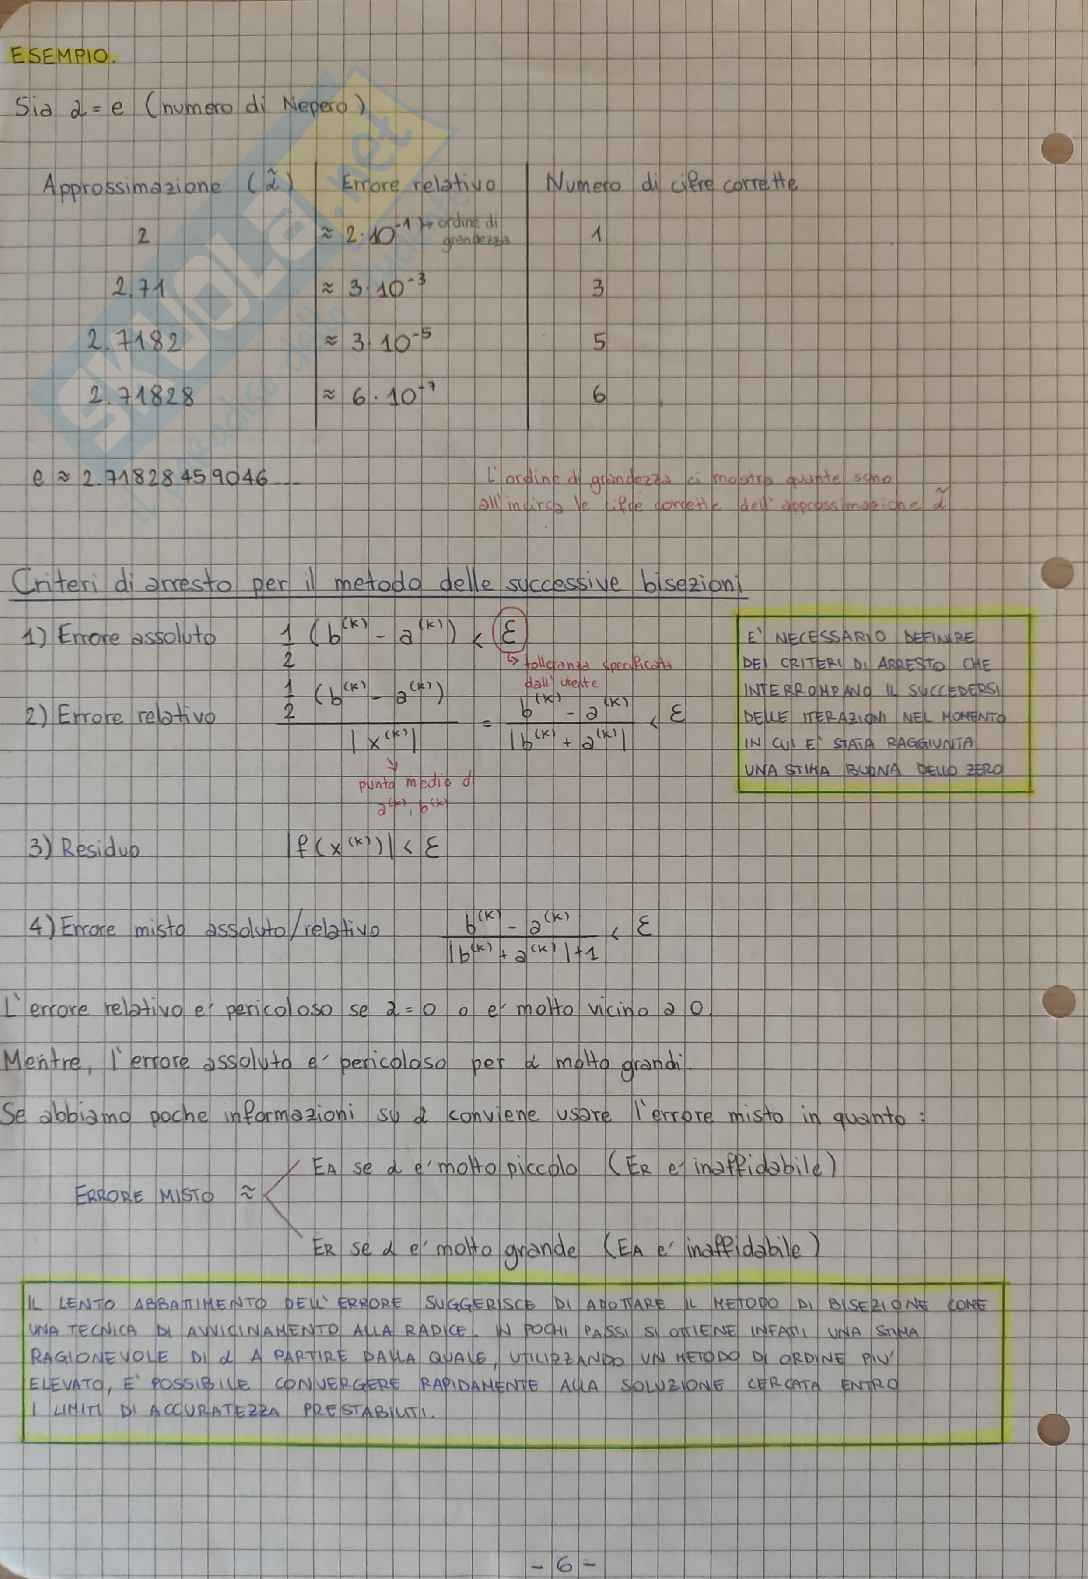 ESEMPIO.
Sia α = e (numero di Nepero)
Approssimazione (α̃) | Errore relativo | Numero di cifre corrette
2 | ≈ 2·10⁻¹ → ordine di grandezza | 1
2.71 | ≈ 3·10⁻³ | 3
2.7182 | ≈ 3·10⁻⁵ | 5
2.71828 | ≈ 6·10⁻⁷ | 6
e ≈ 2.71828459046...
L'ordine di grandezza ci mostra quante sono
all'incirca le cifre corrette dell'approssimazione α̃
Criteri di arresto per il metodo delle successive bisezioni
1) Errore assoluto 1/2 (b^(k) - a^(k)) < ε
→ tolleranza specificata
dall'utente
2) Errore relativo 1/2 (b^(k) - a^(k)) / |x^(k)| = (b^(k) - a^(k)) / |b^(k) + a^(k)| < ε
punto medio di
a^(k), b^(k)
E' NECESSARIO DEFINIRE
DEI CRITERI DI ARRESTO CHE
INTERROMPANO IL SUCCEDERSI
DELLE ITERAZIONI NEL MOMENTO
IN CUI E' STATA RAGGIUNTA
UNA STIMA BUONA DELLO ZERO
3) Residuo |f(x^(k))| < ε
4) Errore misto assoluto/relativo (b^(k) - a^(k)) / (|b^(k) + a^(k)| + 1) < ε
L'errore relativo e' pericoloso se α = 0 o e' molto vicino a 0.
Mentre, l'errore assoluto e' pericoloso per α molto grandi.
Se abbiamo poche informazioni su α conviene usare l'errore misto in quanto:
EA se α e' molto piccolo (ER e' inaffidabile)
ERRORE MISTO ≈
ER se α e' molto grande (EA e' inaffidabile)
IL LENTO ABBATTIMENTO DELL'ERRORE SUGGERISCE DI ADOTTARE IL METODO DI BISEZIONE COME
UNA TECNICA DI AVVICINAMENTO ALLA RADICE. IN POCHI PASSI SI OTTIENE INFATTI UNA STIMA
RAGIONEVOLE DI α A PARTIRE DALLA QUALE, UTILIZZANDO UN METODO DI ORDINE PIU'
ELEVATO, E' POSSIBILE CONVERGERE RAPIDAMENTE ALLA SOLUZIONE CERCATA ENTRO
I LIMITI DI ACCURATEZZA PRESTABILITI.
- 6 -
SKUOLA.net